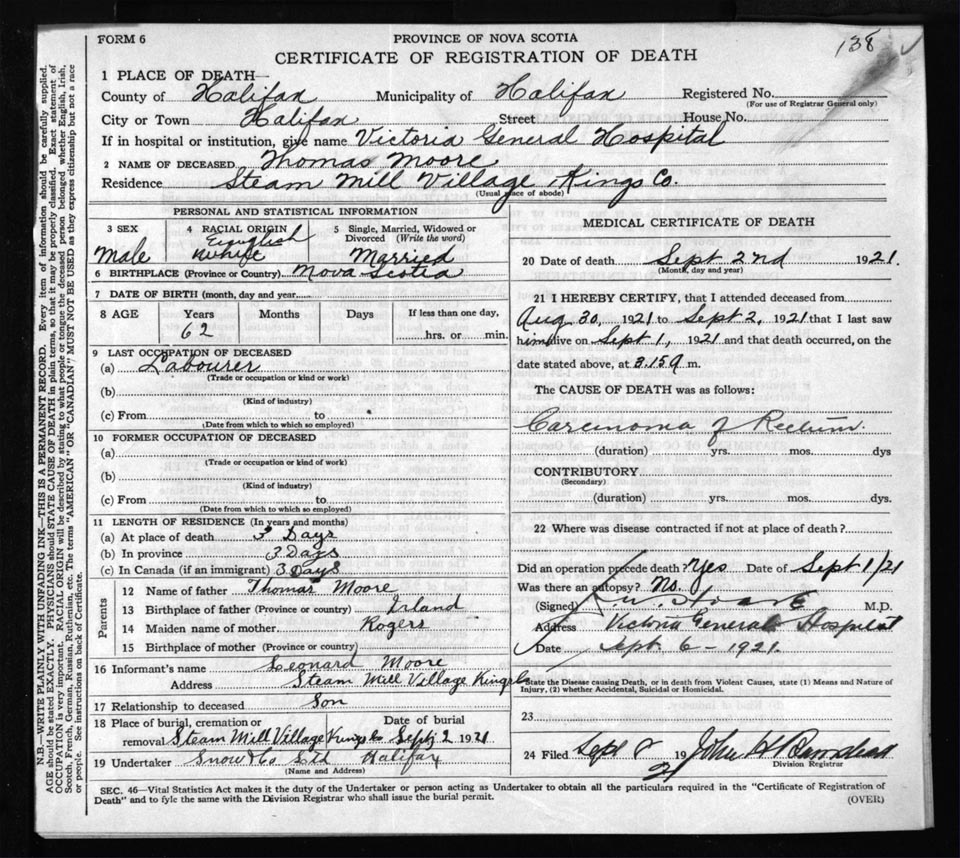 FORM 6
PROVINCE OF NOVA SCOTIA
138
CERTIFICATE OF REGISTRATION OF DEATH
1 PLACE OF DEATH
County of Halifax Municipality of Halifax Registered No.
(For use of Registrar General only)
City or Town Halifax Street House No.
If in hospital or institution, give name Victoria General Hospital
2 NAME OF DECEASED Thomas Moore
Residence Steam Mill Village Kings Co.
(Usual place of abode)
PERSONAL AND STATISTICAL INFORMATION
3 SEX 4 RACIAL ORIGIN 5 Single, Married, Widowed or Divorced (Write the word)
Male English White Married
6 BIRTHPLACE (Province or Country) Nova Scotia
7 DATE OF BIRTH (month, day and year
8 AGE Years Months Days If less than one day,
62 hrs. or min.
9 LAST OCCUPATION OF DECEASED
(a) Labourer
(Trade or occupation or kind or work)
(b)
(Kind of industry)
(c) From to
(Date from which to which so employed)
10 FORMER OCCUPATION OF DECEASED
(a)
(Trade or occupation or kind of work)
(b)
(Kind of industry)
(c) From to
(Date from which to which so employed)
11 LENGTH OF RESIDENCE (In years and months)
(a) At place of death 3 Days
(b) In province 3 Days
(c) In Canada (if an immigrant) 3 Days
Parents
12 Name of father Thomas Moore
13 Birthplace of father (Province or country) Irland
14 Maiden name of mother Rogers
15 Birthplace of mother (Province or country)
16 Informant's name Leonard Moore
Address Steam Mill Village Kings Co
17 Relationship to deceased Son
18 Place of burial, cremation or Date of burial
removal Steam Mill Village Kings Co Sept 2 1921
19 Undertaker Snow & Co Ltd Halifax
(Name and Address)
MEDICAL CERTIFICATE OF DEATH
20 Date of death Sept 2nd 1921.
(Month, day and year)
21 I HEREBY CERTIFY, that I attended deceased from
Aug 30, 1921 to Sept 2, 1921 that I last saw
him alive on Sept 1, 1921 and that death occurred, on
date stated above, at 3.15 a m.
The CAUSE OF DEATH was as follows:
Carcinoma of Rectum.
(duration) yrs. mos. dys
CONTRIBUTORY
(Secondary)
(duration) yrs. mos. dys.
22 Where was disease contracted if not at place of death?
Did an operation precede death? Yes Date of Sept 1/21
Was there an autopsy? No.
(Signed) M.D.
Address Victoria General Hospital
Date Sept. 6 - 1921.
State the Disease causing Death, or in death from Violent Causes, state (1) Means and Nature of
Injury, (2) whether Accidental, Suicidal or Homicidal.
23
24 Filed Sept 8 1921 John H
Division Registrar
SEC. 46—Vital Statistics Act makes it the duty of the Undertaker or person acting as Undertaker to obtain all the particulars required in the "Certificate of Registration of
Death" and to fyle the same with the Division Registrar who shall issue the burial permit.
(OVER)
N.B.—WRITE PLAINLY WITH UNFADING INK—THIS IS A PERMANENT RECORD. Every item of information should be carefully supplied.
AGE should be stated EXACTLY. PHYSICIANS should STATE CAUSE OF DEATH in plain terms, so that it may be properly classified. Exact statement of
OCCUPATION is very important. RACIAL ORIGIN will be described by stating to what people or tongue the deceased person belonged, whether English, Irish,
Scotch, French, German, Russian, Ruthenian, etc. The terms "AMERICAN" OR "CANADIAN" MUST NOT BE USED as they express citizenship but not a race
or people. See instructions on back of Certificate.